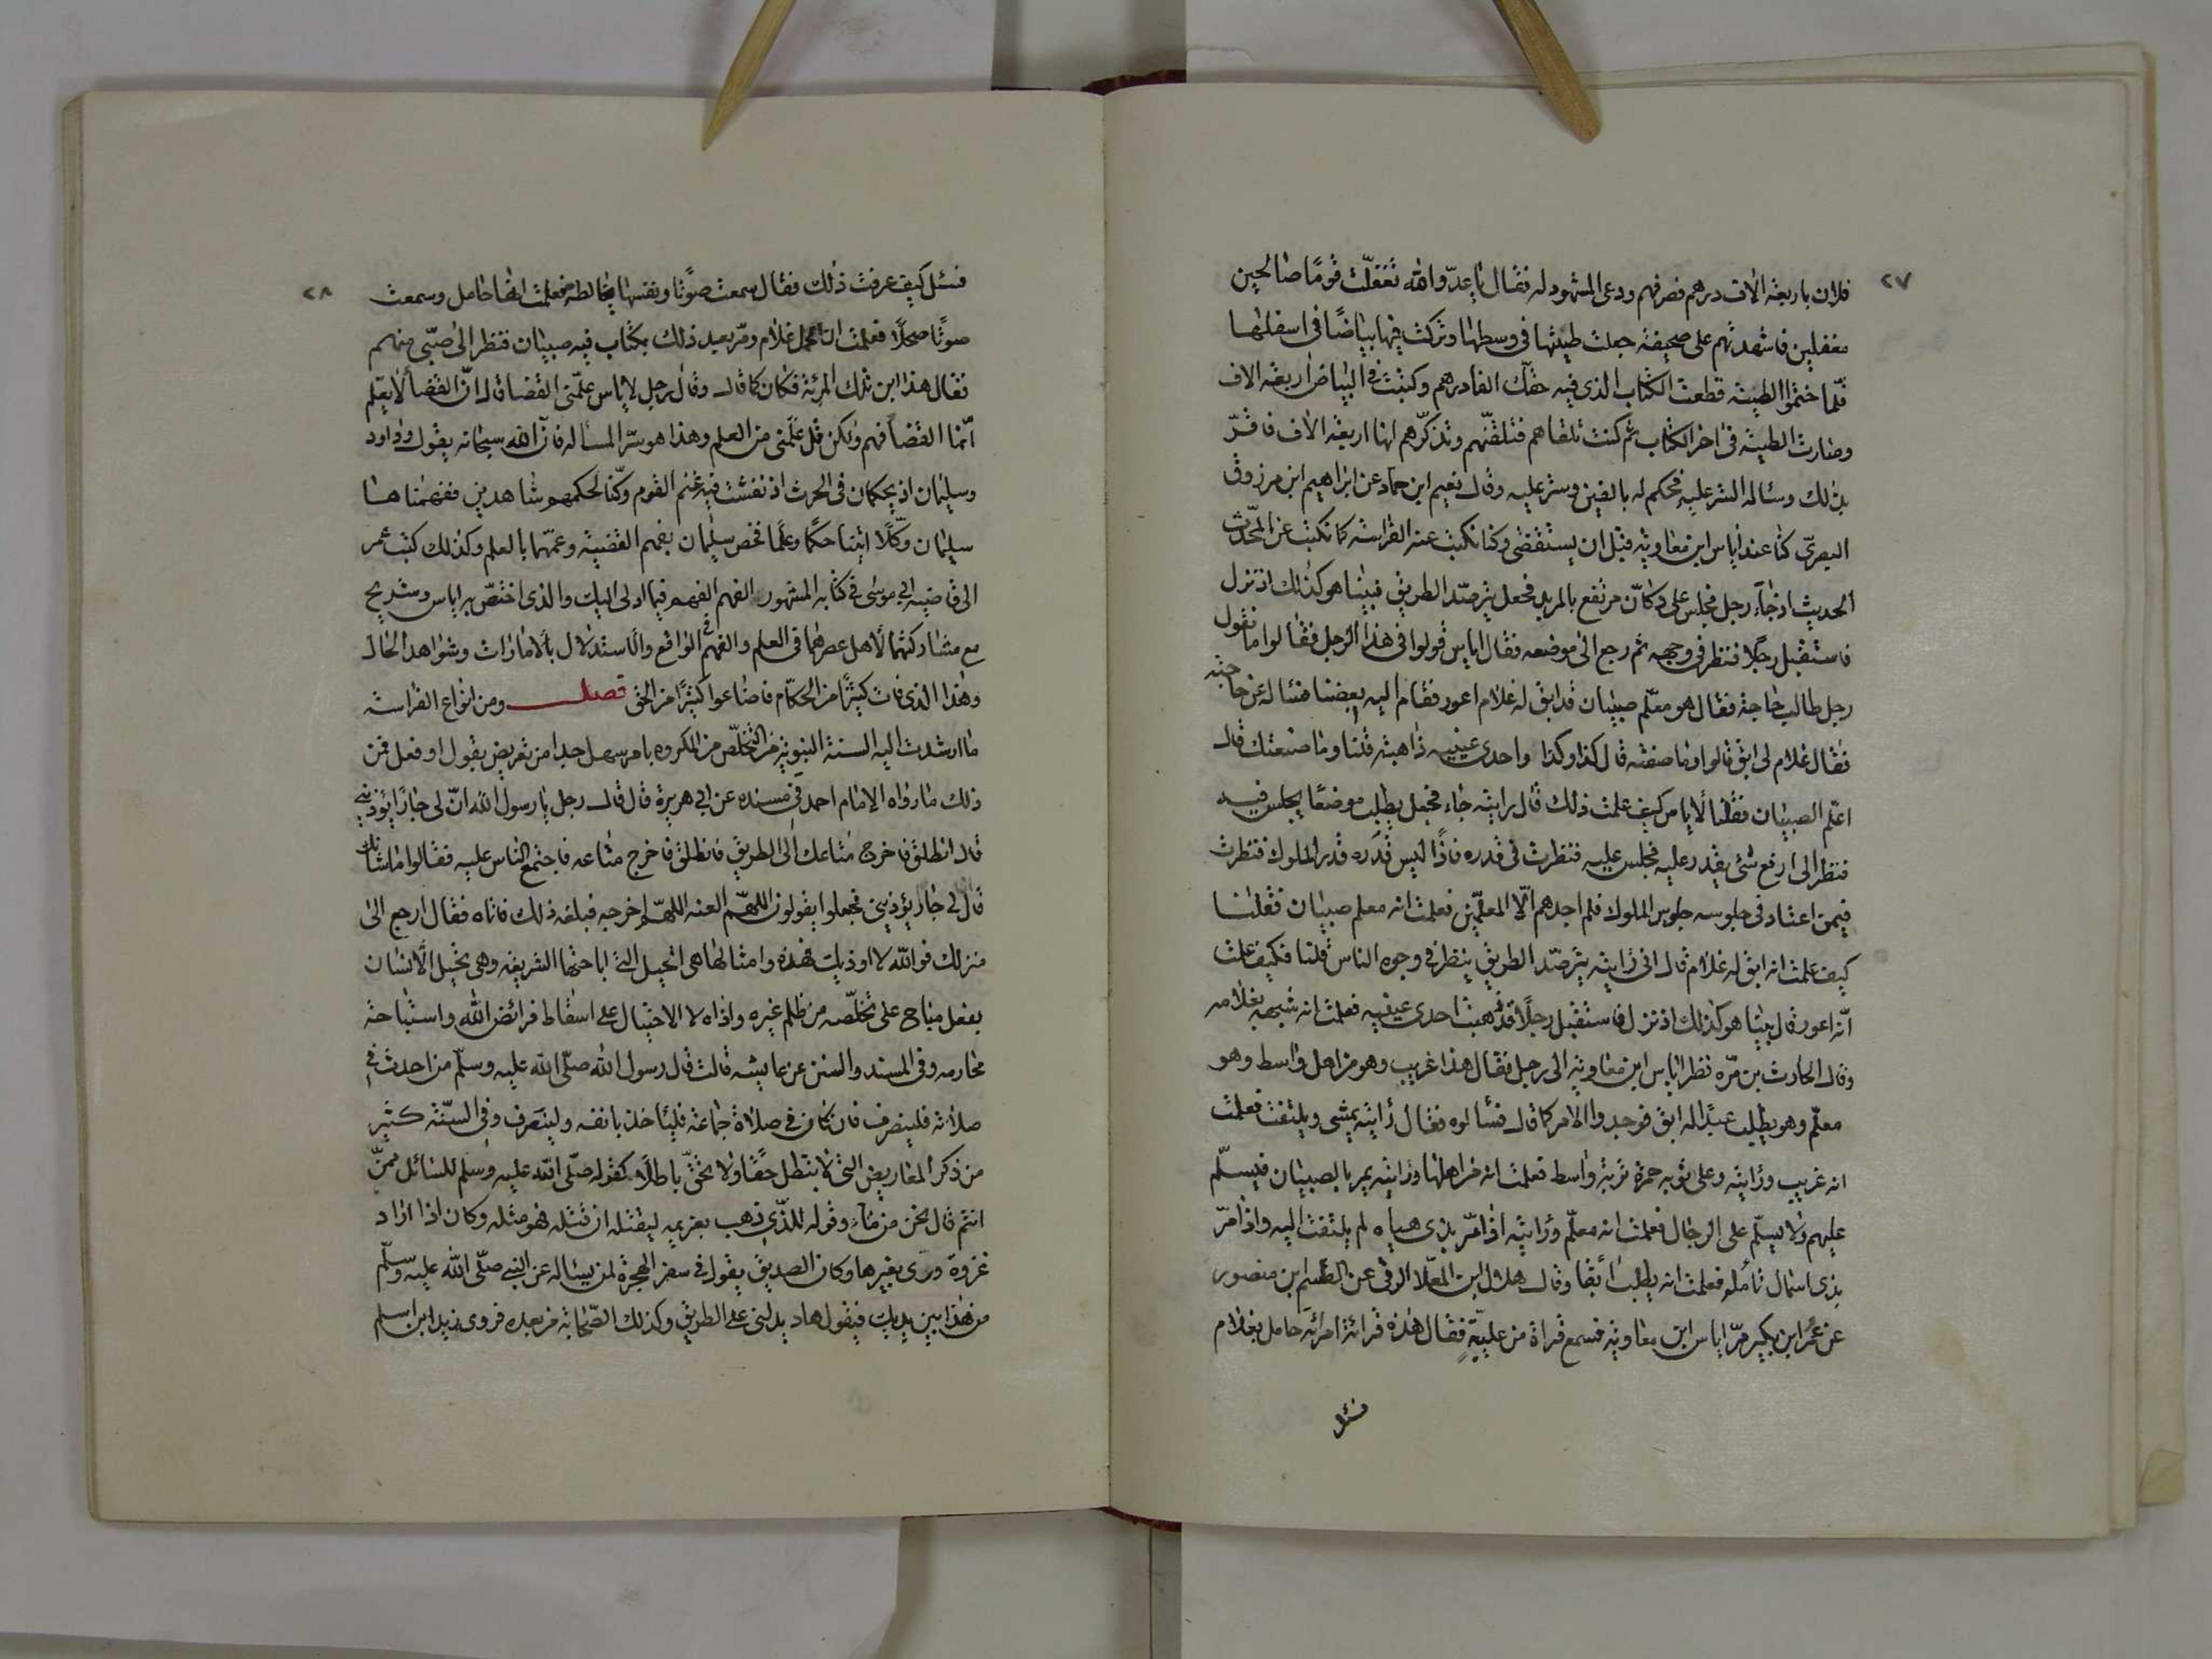 ٢٧
فلان باربعة الاف درهم فصرفهم ودعى المشهود له فقال يا عدو الله تغفّلت قومًا صالحين
مغفلين فاشهدتهم على صحيفة جعلت طينتها فى وسطها وتركت فيها بياضًا فى اسفلها
فلمّا ختموا الطينة قطعت الكتاب الذى فيه حقّك الفا درهم وكتبت فى البياض اربعة الاف
وصارت الطينة فى اخر الكتاب ثم كنت تلقاهم فتلقّنهم وتذكّرهم انها اربعة الاف فاقرّ
بذلك وساله الستر عليه فحكم له بالفين وستر عليه وقال نعيم ابن حماد عن ابراهيم ابن مرزوق
البصرىّ كنا عند اياس ابن معاوية قبل ان يستقضى وكنا نكتب عنه الفراسة كما نكتب عن المحّدث
الحديث اذ جاء رجل فجلس على دكّان مرتفع بالمربد فجعل يترصّد الطريق فبينا هو كذلك اذ نزل
فاستقبل رجلًا فنظر فى وجهه ثم رجع الى موضعه فقال اياس قولوا فى هذا الرجل فقالوا ما نقول
رجل طالب حاجة فقال هو معلّم صبيان قد ابق له غلام اعور فقام اليه بعضنا فساله عن حاجته
فقال غلام لى ابق قالوا وما صفته قال كذا وكذا واحدى عينيه ذاهبة قلنا وما صنعتك قال
اعلّم الصبيان فقلنا لاياس كيف علمت ذلك قال رايته جاء فجعل يطلب موضعًا يجلس فيه
فنظر الى ارفع شئ يقدر عليه فجلس عليه فنظرت فى قدره فاذا ليس قدره قدر الملوك فنظرت
فيمن اعتاد فى جلوسه جلوس الملوك فلم اجدهم الّا المعلّمين فعلمت انه معلم صبيان فقلنا
كيف علمت انه ابق له غلام قال انى رايته يترصّد الطريق ينظر فى وجوه الناس قلنا فكيف علمت
انّه اعور قال بينا هو كذلك اذ نزل فاستقبل رجلًا قد ذهبت احدى عينيه فعلمت انه شبهه بغلامه
وقال الحارث بن مرّه نظر اياس ابن معاوية الى رجل فقال هذا غريب وهو من اهل واسط وهو
معلّم وهو يطلب عبدًا له ابق فوجدوا الامر كما قال فسألوه فقال رأيته يمشى ويلتفت فعلمت
انه غريب ورأيته وعلى ثوبه حمرة تربة واسط فعلمت انه من اهلها ورأيته يمر بالصبيان فيسلّم
عليهم ولا يسلّم على الرجال فعلمت انه معلّم ورأيته اذا مرّ بذى هياه لم يلتفت اليه واذا مرّ
بذى اسمال تأمله فعلمت انه يطلب ابقا وقال هلال ابن المعلّا الرقى عن القسم ابن منصور
عن عمر ابن بكير مرّ اياس ابن معاوية فسمع قراة من عليّةٍ فقال هذه قرائة امرائة حامل بغلام
فسئل
٢٨
فسئل كيف عرفت ذلك فقال سمعت صوتًا ونفسها يخالطه فعلمت انها حامل وسمعت
صوتًا صحلًا فعلمت ان الحمل غلام ومرّ بعيد ذلك بكتاب فيه صبيان فنظر الى صبّى منهم
فقال هذا ابن تلك المرئة فكان كما قال وقال رجل لاياس علّمنى القضا قال انّ القضا لا يعلّم
انّما القضا فهم ولكن قل علّمنى من العلم وهذا هو سرّ المساله فان الله سبحانه يقول وداود
وسليمان اذ يحكمان فى الحرث اذ نفشت فيه غنم القوم وكّنا لحكمهم شاهدين ففهمناها
سليمان وكّلًا اتينا حكمًا وعلمًا فخص سليمان بفهم القضية وعمّهما بالعلم وكذلك كتب عمر
الى قاضيه ابى موسى فى كتابه المشهور الفهم الفهم فيما ادلى اليك والذى اختصّ به اياس وشريح
مع مشاركتهما لاهل عصرهما فى العلم والفهم فى الواقع والاستدلال بالامارات وشواهد الحال
وهذا الذى فات كثيرًا من الحكّام فاضاعوا كثيرًا من الحق فصل ومن انواع الفراسة
ما ارشدت اليه السنة النبويّة من التخلّص من المكروه بامر سهل جدا من تعريض بقول او فعل فمن
ذلك ما رواه الامام احمد فى مسنده عن ابى هريرة قال قال رجل يا رسول الله انّ لى جارًا يؤذينى
قال انطلق فاخرج متاعك الى الطريق فانطلق فاخرج متاعه فاجتمع الناس عليه فقالوا ما شانك
قال لى جار يؤذينى فجعلوا يقولون اللهمّ العنه اللهمّ اخرجه فبلغه ذلك فاتاه فقال ارجع الى
منزلك فوالله لا اوذيك فهذه وامثالها هى الحيل التى اباحتها الشريفه وهى تحيل الانسان
بفعل مباح على تخلّصه من ظلم غيره واذاه لا الاحتيال على اسقاط فرائض الله واستباحة
محارمه وفى المسند والسنن عن عايشه قالت قال رسول الله صلّى الله عليه وسلّم من احدث فى
صلاته فلينصرف فان كان فى صلاة جماعة فليئاخذ بانفه ولينصرف وفى السنّة كثير
من ذكر المعاريض التى لا تبطل حقًا ولا تحّق باطلًا كقوله صلّى الله عليه وسلم للسائل ممنّ
انتم قال نحن من مآء وقوله للذى ذهب بغريمه ليقتله ان قتله فهو مثله وكان اذا اراد
غزوة ورّى بغيرها وكان الصديق يقول فى سفر الهجرة لمن يساله عن النبى صلّى الله عليه وسلّم
من هذا بين يديك فيقول هاد يدلنى على الطريق وكذلك الصّحابة من بعده فروى زيد ابن اسلم